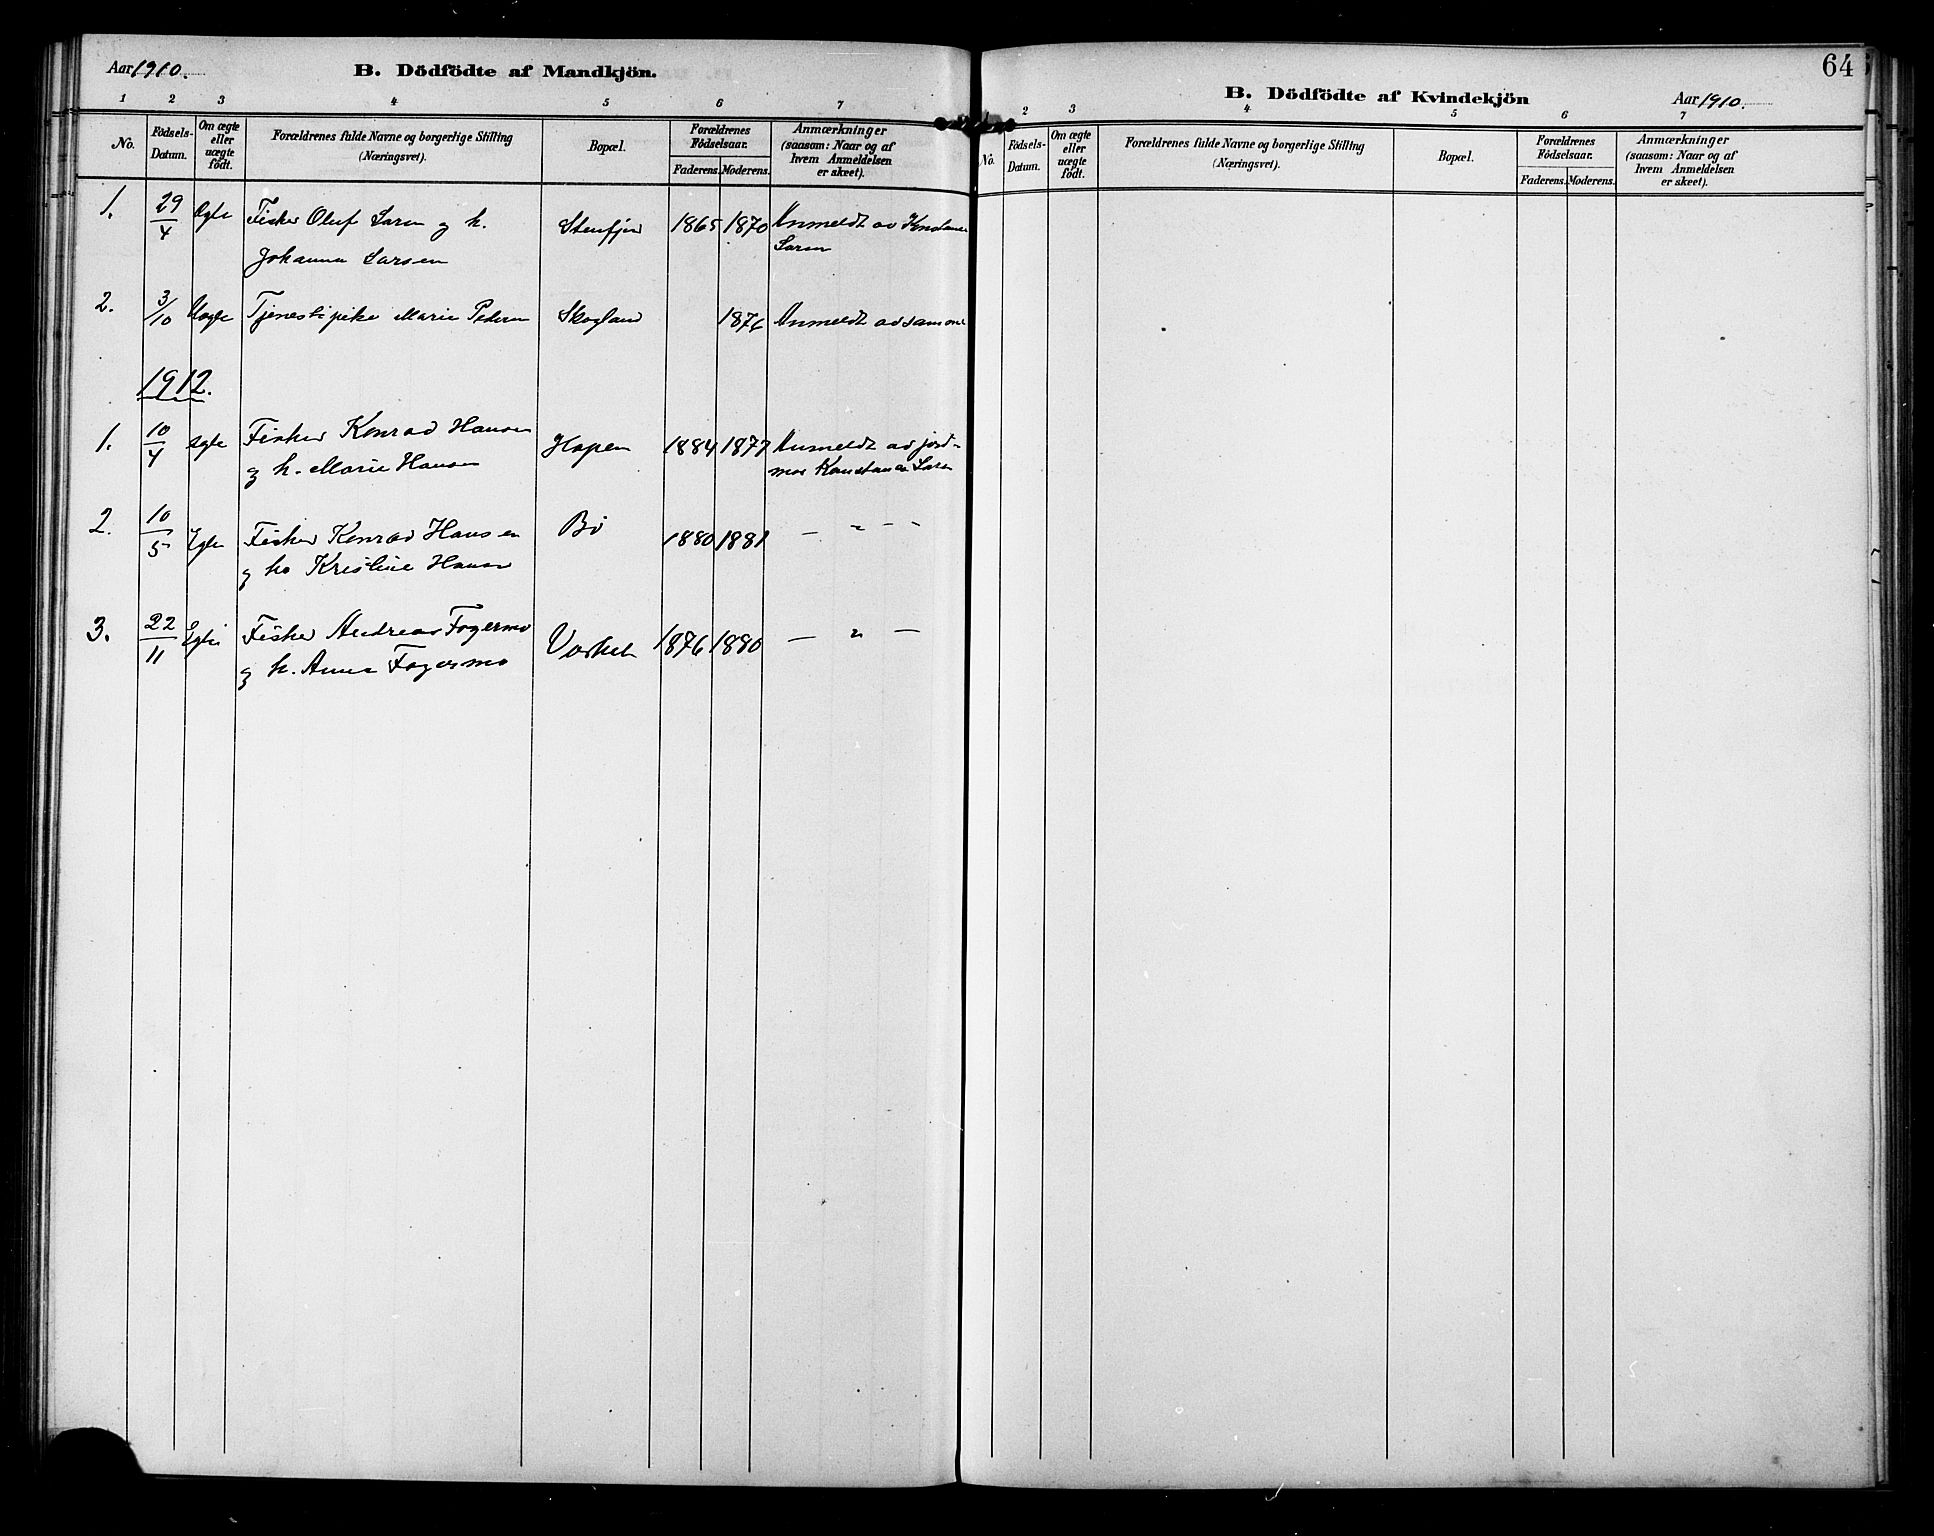 Aar 1910.
B. Dödfödte af Mandkjön.
1 2 3 4 5 6 7
No.
Födsels-
Datum.
Om ægte
eller
uægte
födt.
Forældrenes fulde Navne og borgerlige Stilling
(Næringsvei).
Bopæl.
Forældrenes
Födselsaar.
Faderens. Moderens.
Anmærkninger
(saasom: Naar og af
hvem Anmeldelsen
er skeet).
1. 29/4 Fisker Oluf Larsen og h. 1865 1870 Anmeldt av
Johanna Larsen
2. 3/10 Uegte Tjenestepike Marie Skogland 1876 Anmeldt av samme
1912.
1. 10/4 Fisker Konrad Hansen Hopen 1884 1877 Anmeldt av jord-
og h. Marie Hansen mor Konstance
2. 10/5 Fisker Konrad Hansen Bö 1880 1881 — " —
og h. Kristine Hansen
3. 22/11 Fisker Andreas Fagermo 1876 1880 — " —
og h. Anna Fagermo
64
B. Dödfödte af Kvindekjön
Aar 1910.
2 3 4 5 6 7
No.
Födsels-
Datum.
Om ægte
eller
uægte
födt.
Forældrenes fulde Navne og borgerlige Stilling
(Næringsvei).
Bopæl.
Forældrenes
Födselsaar.
Faderens. Moderens.
Anmærkninger
(saasom: Naar og af
hvem Anmeldelsen
er skeet).